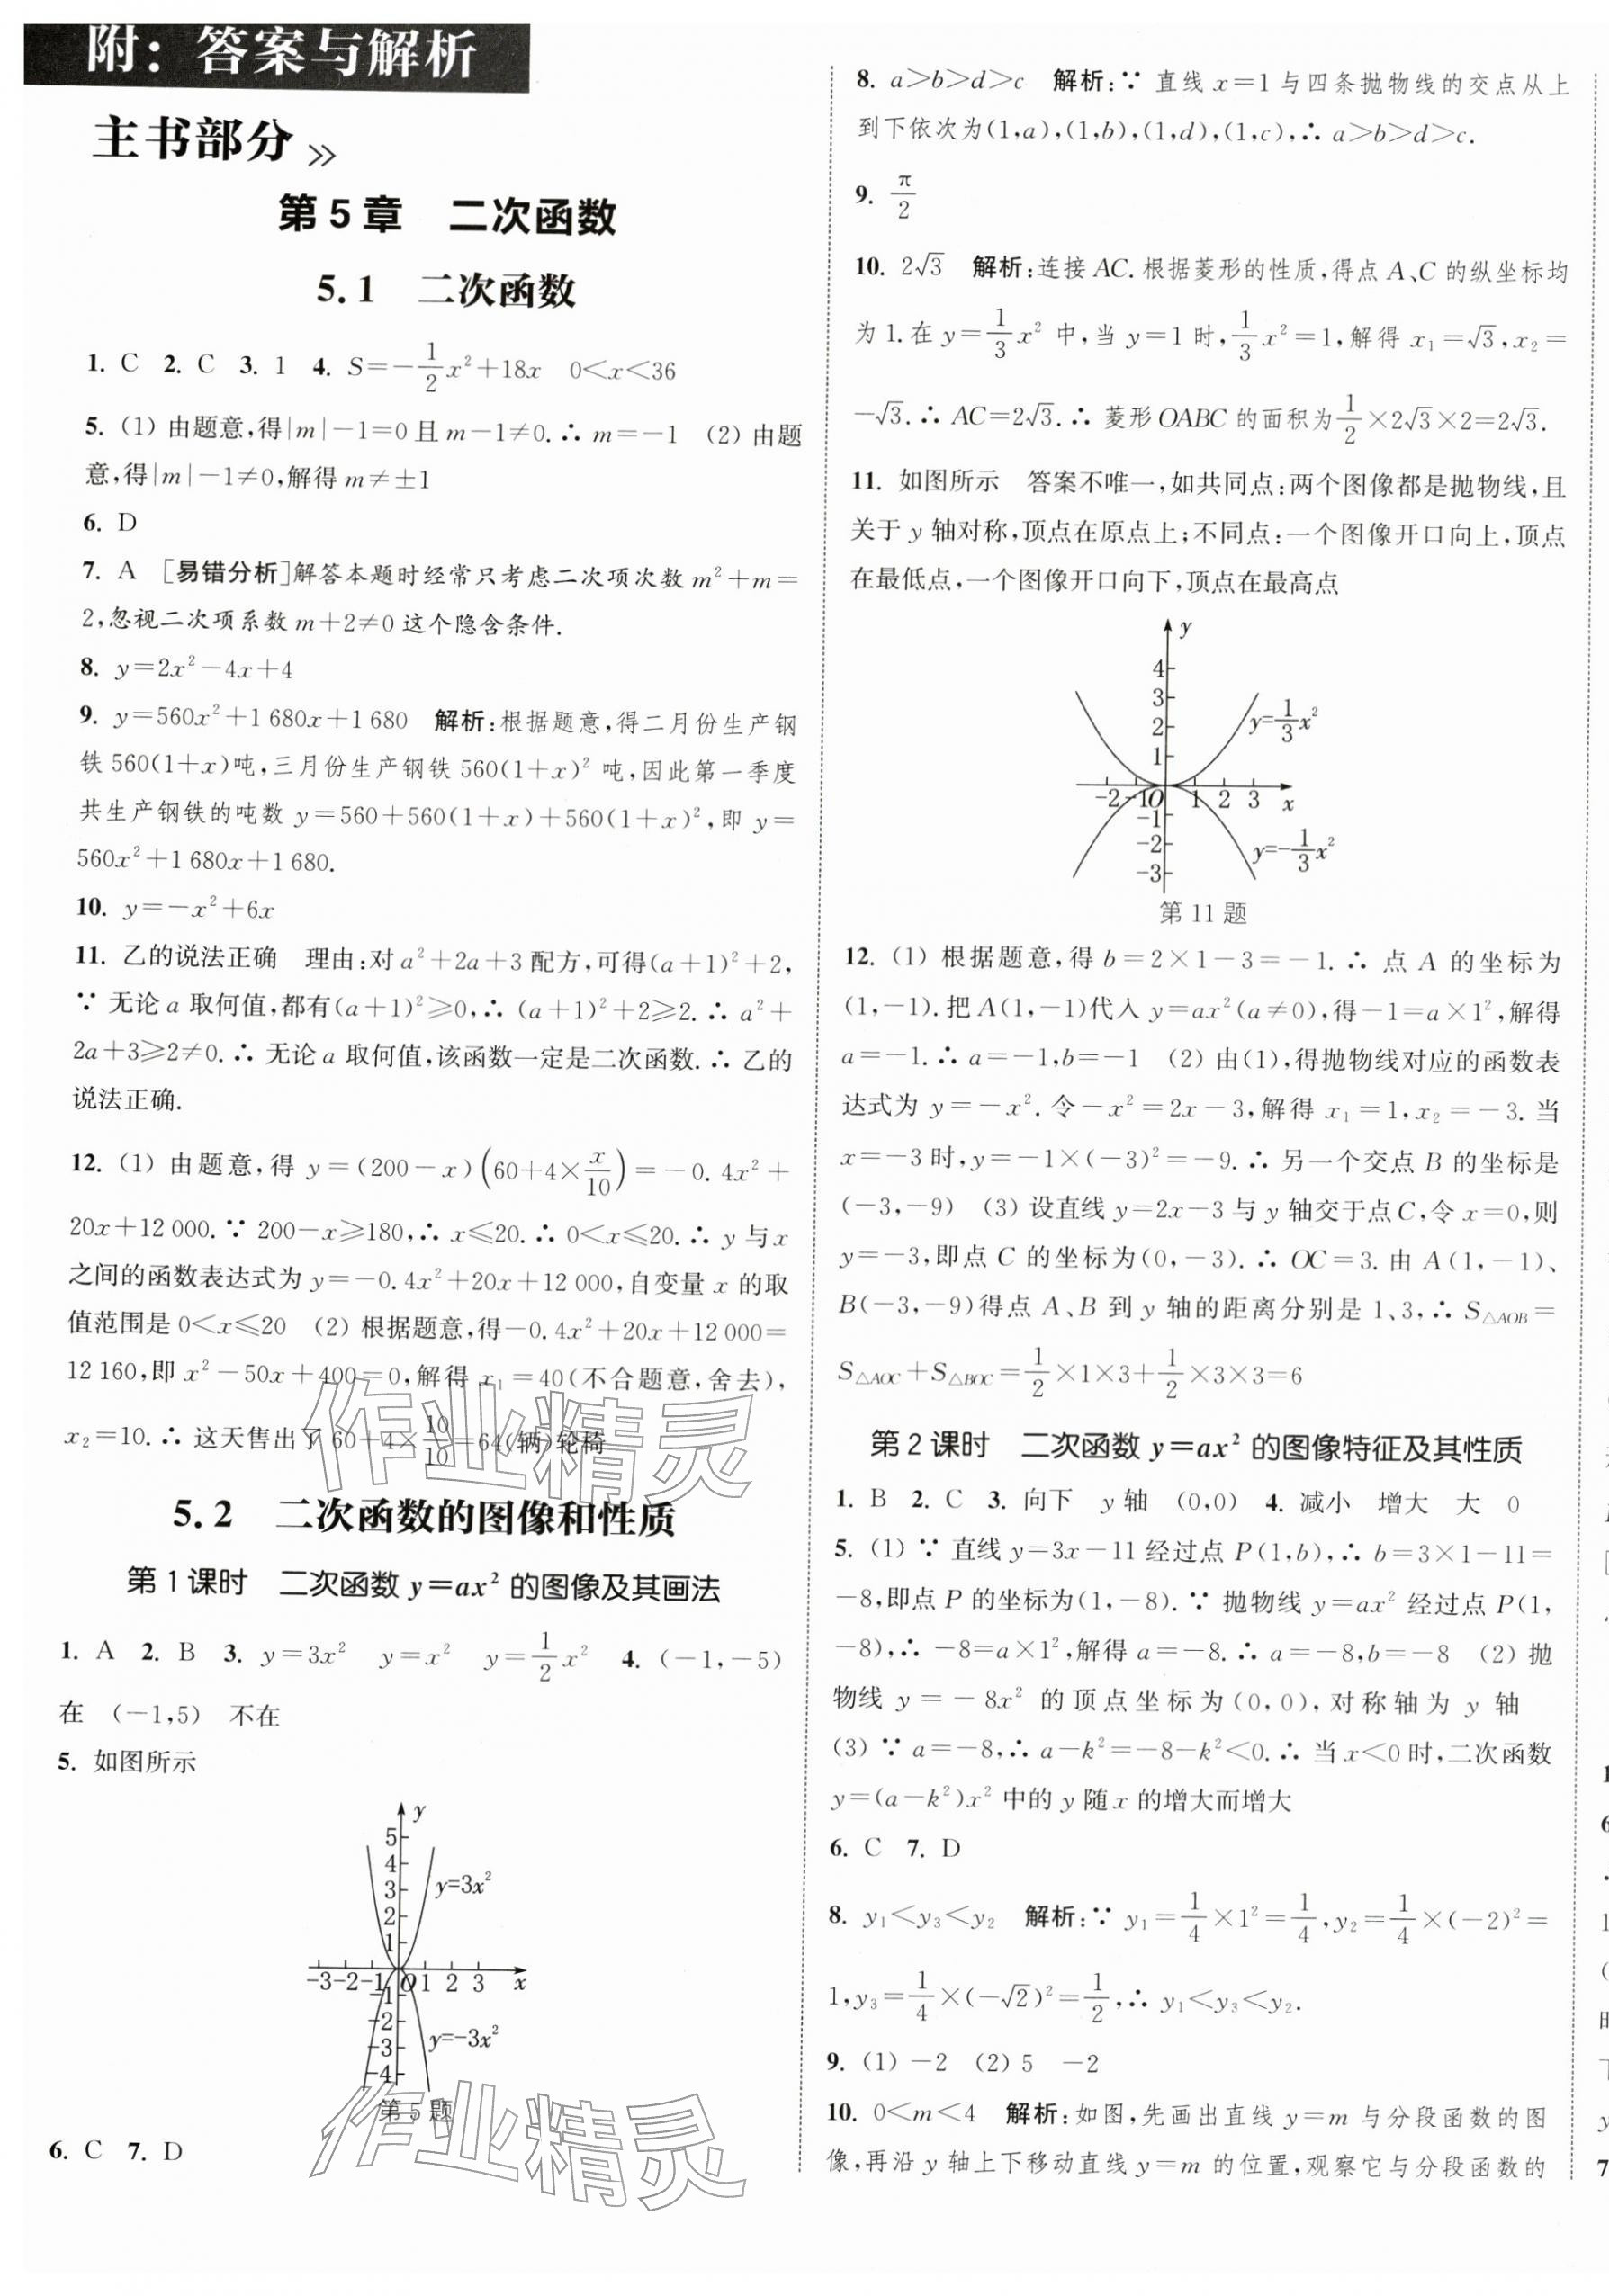 附：答案与解析
主书部分
第5章 二次函数
5.1 二次函数
1. C 2. C 3. 1 4. S=-1/2x²+18x 0<x<36
5. (1) 由题意,得|m|-1=0且m-1≠0.∴ m=-1 (2) 由题
意,得|m|-1≠0,解得m≠±1
6. D
7. A [易错分析]解答本题时经常只考虑二次项次数m²+m=
2,忽视二次项系数m+2≠0这个隐含条件.
8. y=2x²-4x+4
9. y=560x²+1 680x+1 680 解析:根据题意,得二月份生产钢
铁560(1+x)吨,三月份生产钢铁560(1+x)² 吨,因此第一季度
共生产钢铁的吨数y=560+560(1+x)+560(1+x)²,即y=
560x²+1 680x+1 680.
10. y=-x²+6x
11. 乙的说法正确 理由:对a²+2a+3配方,可得(a+1)²+2,
∵ 无论a取何值,都有(a+1)²≥0,∴ (a+1)²+2≥2.∴ a²+
2a+3≥2≠0.∴ 无论a取何值,该函数一定是二次函数.∴ 乙的
说法正确.
12. (1) 由题意,得 y=(200-x)(60+4×x/10)=-0.4x²+
20x+12 000.∵ 200-x≥180,∴ x≤20.∴ 0<x≤20.∴ y与x
之间的函数表达式为y=-0.4x²+20x+12 000,自变量x的取
值范围是0<x≤20 (2) 根据题意,得-0.4x²+20x+12 000=
12 160,即x²-50x+400=0,解得x₁=40(不合题意,舍去),
x₂=10.∴ 这天售出了60+4×10/10=64(辆)轮椅
5.2 二次函数的图像和性质
第1课时 二次函数y=ax²的图像及其画法
1. A 2. B 3. y=3x² y=x² y=1/2x² 4. (-1,-5)
在 (-1,5) 不在
5. 如图所示
y
5
4
3
2
1
y=3x²
-3 -2 -1 O 1 2 3 x
-1
-2
-3
-4
y=-3x²
第5题
作业精灵
作业精灵
6. C 7. D
8. a>b>d>c 解析:∵ 直线x=1与四条抛物线的交点从上
到下依次为(1,a),(1,b),(1,d),(1,c),∴ a>b>d>c.
9. π/2
10. 2√3 解析:连接AC.根据菱形的性质,得点A、C的纵坐标均
为1.在y=1/3x²中,当y=1时,1/3x²=1,解得x₁=√3,x₂=
-√3.∴ AC=2√3.∴ 菱形OABC的面积为1/2×2√3×2=2√3.
11. 如图所示 答案不唯一,如共同点:两个图像都是抛物线,且
关于y轴对称,顶点在原点上;不同点:一个图像开口向上,顶点
在最低点,一个图像开口向下,顶点在最高点
y
4
3
2
1
y=1/3x²
-2 -1 O 1 2 3 x
-1
-2
-3
y=-1/3x²
第11题
12. (1) 根据题意,得b=2×1-3=-1.∴ 点A的坐标为
(1,-1).把A(1,-1)代入y=ax²(a≠0),得-1=a×1²,解得
a=-1.∴ a=-1,b=-1 (2) 由(1),得抛物线对应的函数表
达式为y=-x².令-x²=2x-3,解得x₁=1,x₂=-3.当
x=-3时,y=-1×(-3)²=-9.∴ 另一个交点B的坐标是
(-3,-9) (3) 设直线y=2x-3与y轴交于点C,令x=0,则
y=-3,即点C的坐标为(0,-3).∴ OC=3.由A(1,-1)、
B(-3,-9)得点A、B到y轴的距离分别是1、3,∴ S△AOB=
S△AOC+S△BOC=1/2×1×3+1/2×3×3=6
第2课时 二次函数y=ax²的图像特征及其性质
1. B 2. C 3. 向下 y轴 (0,0) 4. 减小 增大 大 0
5. (1) ∵ 直线y=3x-11经过点P(1,b),∴ b=3×1-11=
-8,即点P的坐标为(1,-8).∵ 抛物线y=ax²经过点P(1,
-8),∴ -8=a×1²,解得a=-8.∴ a=-8,b=-8 (2) 抛
物线y=-8x²的顶点坐标为(0,0),对称轴为y轴
(3) ∵ a=-8,∴ a-k²=-8-k²<0.∴ 当x<0时,二次函数
y=(a-k²)x²中的y随x的增大而增大
6. C 7. D
8. y₁<y₃<y₂ 解析:∵ y₁=1/4×1²=1/4,y₂=1/4×(-2)²=
1,y₃=1/4×(-√2)²=1/2,∴ y₁<y₃<y₂.
9. (1) -2 (2) 5 -2
10. 0<m<4 解析:如图,先画出直线y=m与分段函数的图
像,再沿y轴上下移动直线y=m的位置,观察它与分段函数的